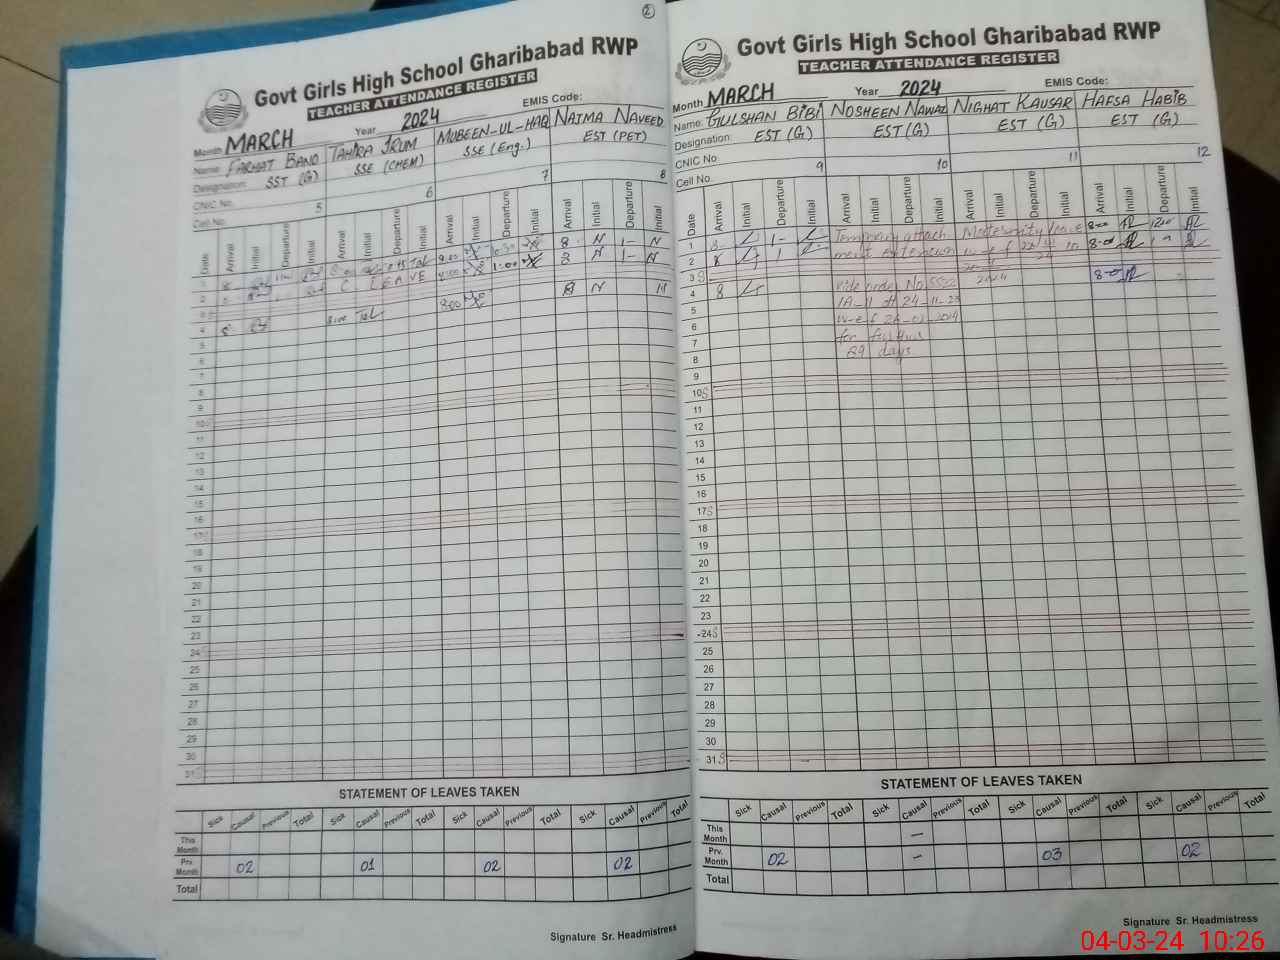 2
Govt Girls High School Gharibabad RWP
TEACHER ATTENDANCE REGISTER
Month MARCH Year 2024 EMIS Code:
Name: FARHAT BANO TAHIRA IRUM MUBEEN-UL-HAQ NAJMA NAVEED
Designation: SST (G) SSE (CHEM) SSE (Eng.) EST (PET)
CNIC No.
Cell No. 5 6 7 8
Date Arrival Initial Departure Initial Arrival Initial Departure Initial Arrival Initial Departure Initial Arrival Initial Departure Initial
1 8 8 N 1- N
2 C LEAVE 8:00 1:00 N 1- N
3
4 8 8:00 8 N N
5
6
7
8
9
10 S
11
12
13
14
15
16
17 S
18
19
20
21
22
23
24
25
26
27
28
29
30
31 S
STATEMENT OF LEAVES TAKEN
Sick Causal Previous Total Sick Causal Previous Total Sick Causal Previous Total Sick Causal Previous Total
This Month
Prv. Month 02 01 02 02
Total
Signature Sr. Headmistress
Govt Girls High School Gharibabad RWP
TEACHER ATTENDANCE REGISTER
Month MARCH Year 2024 EMIS Code:
Name: GULSHAN BIBI NOSHEEN NAWAZ NIGHAT KAUSAR HAFSA HABIB
Designation: EST (G) EST (G) EST (G) EST (G)
CNIC No
Cell No. 9 10 11 12
Date Arrival Initial Departure Initial Arrival Initial Departure Initial Arrival Initial Departure Initial Arrival Initial Departure Initial
1 8 1- Temporary attach Maternity leave 8-00
2 8 1 ment extention w-e-f 8-00
3 S
4 8 vide order No 8-00
5 1A-II dt 24-11-23
6 w-e-f
7 for further
8 89 days
9
10 S
11
12
13
14
15
16
17 S
18
19
20
21
22
23
24 S
25
26
27
28
29
30
31 S
STATEMENT OF LEAVES TAKEN
Sick Causal Previous Total Sick Causal Previous Total Sick Causal Previous Total Sick Causal Previous Total
This Month –
Prv. Month 02 – 03 02
Total
Signature Sr. Headmistress
04-03-24 10:26